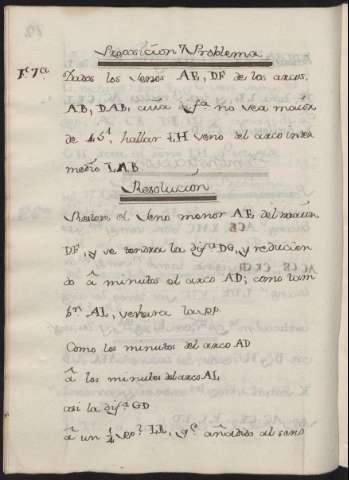 Proposicion 7 Problema
Fª 7ª
Dados los senos AE, DF de los arcos,
AB, DAB, cuia difª no sea maior
de 45', hallar LH seno del arco inter
medio LAB
Resolucion
Restese el seno menor AE del maior
DF, y se tendra la difª DG, y reducien
do â minutos el arco AD; como tam
bn AL, se hara la pp
Como los minutos del arco AD
â los minutos del arco AL
asi la difª GD
â un 4º LI, qe añadido al seno